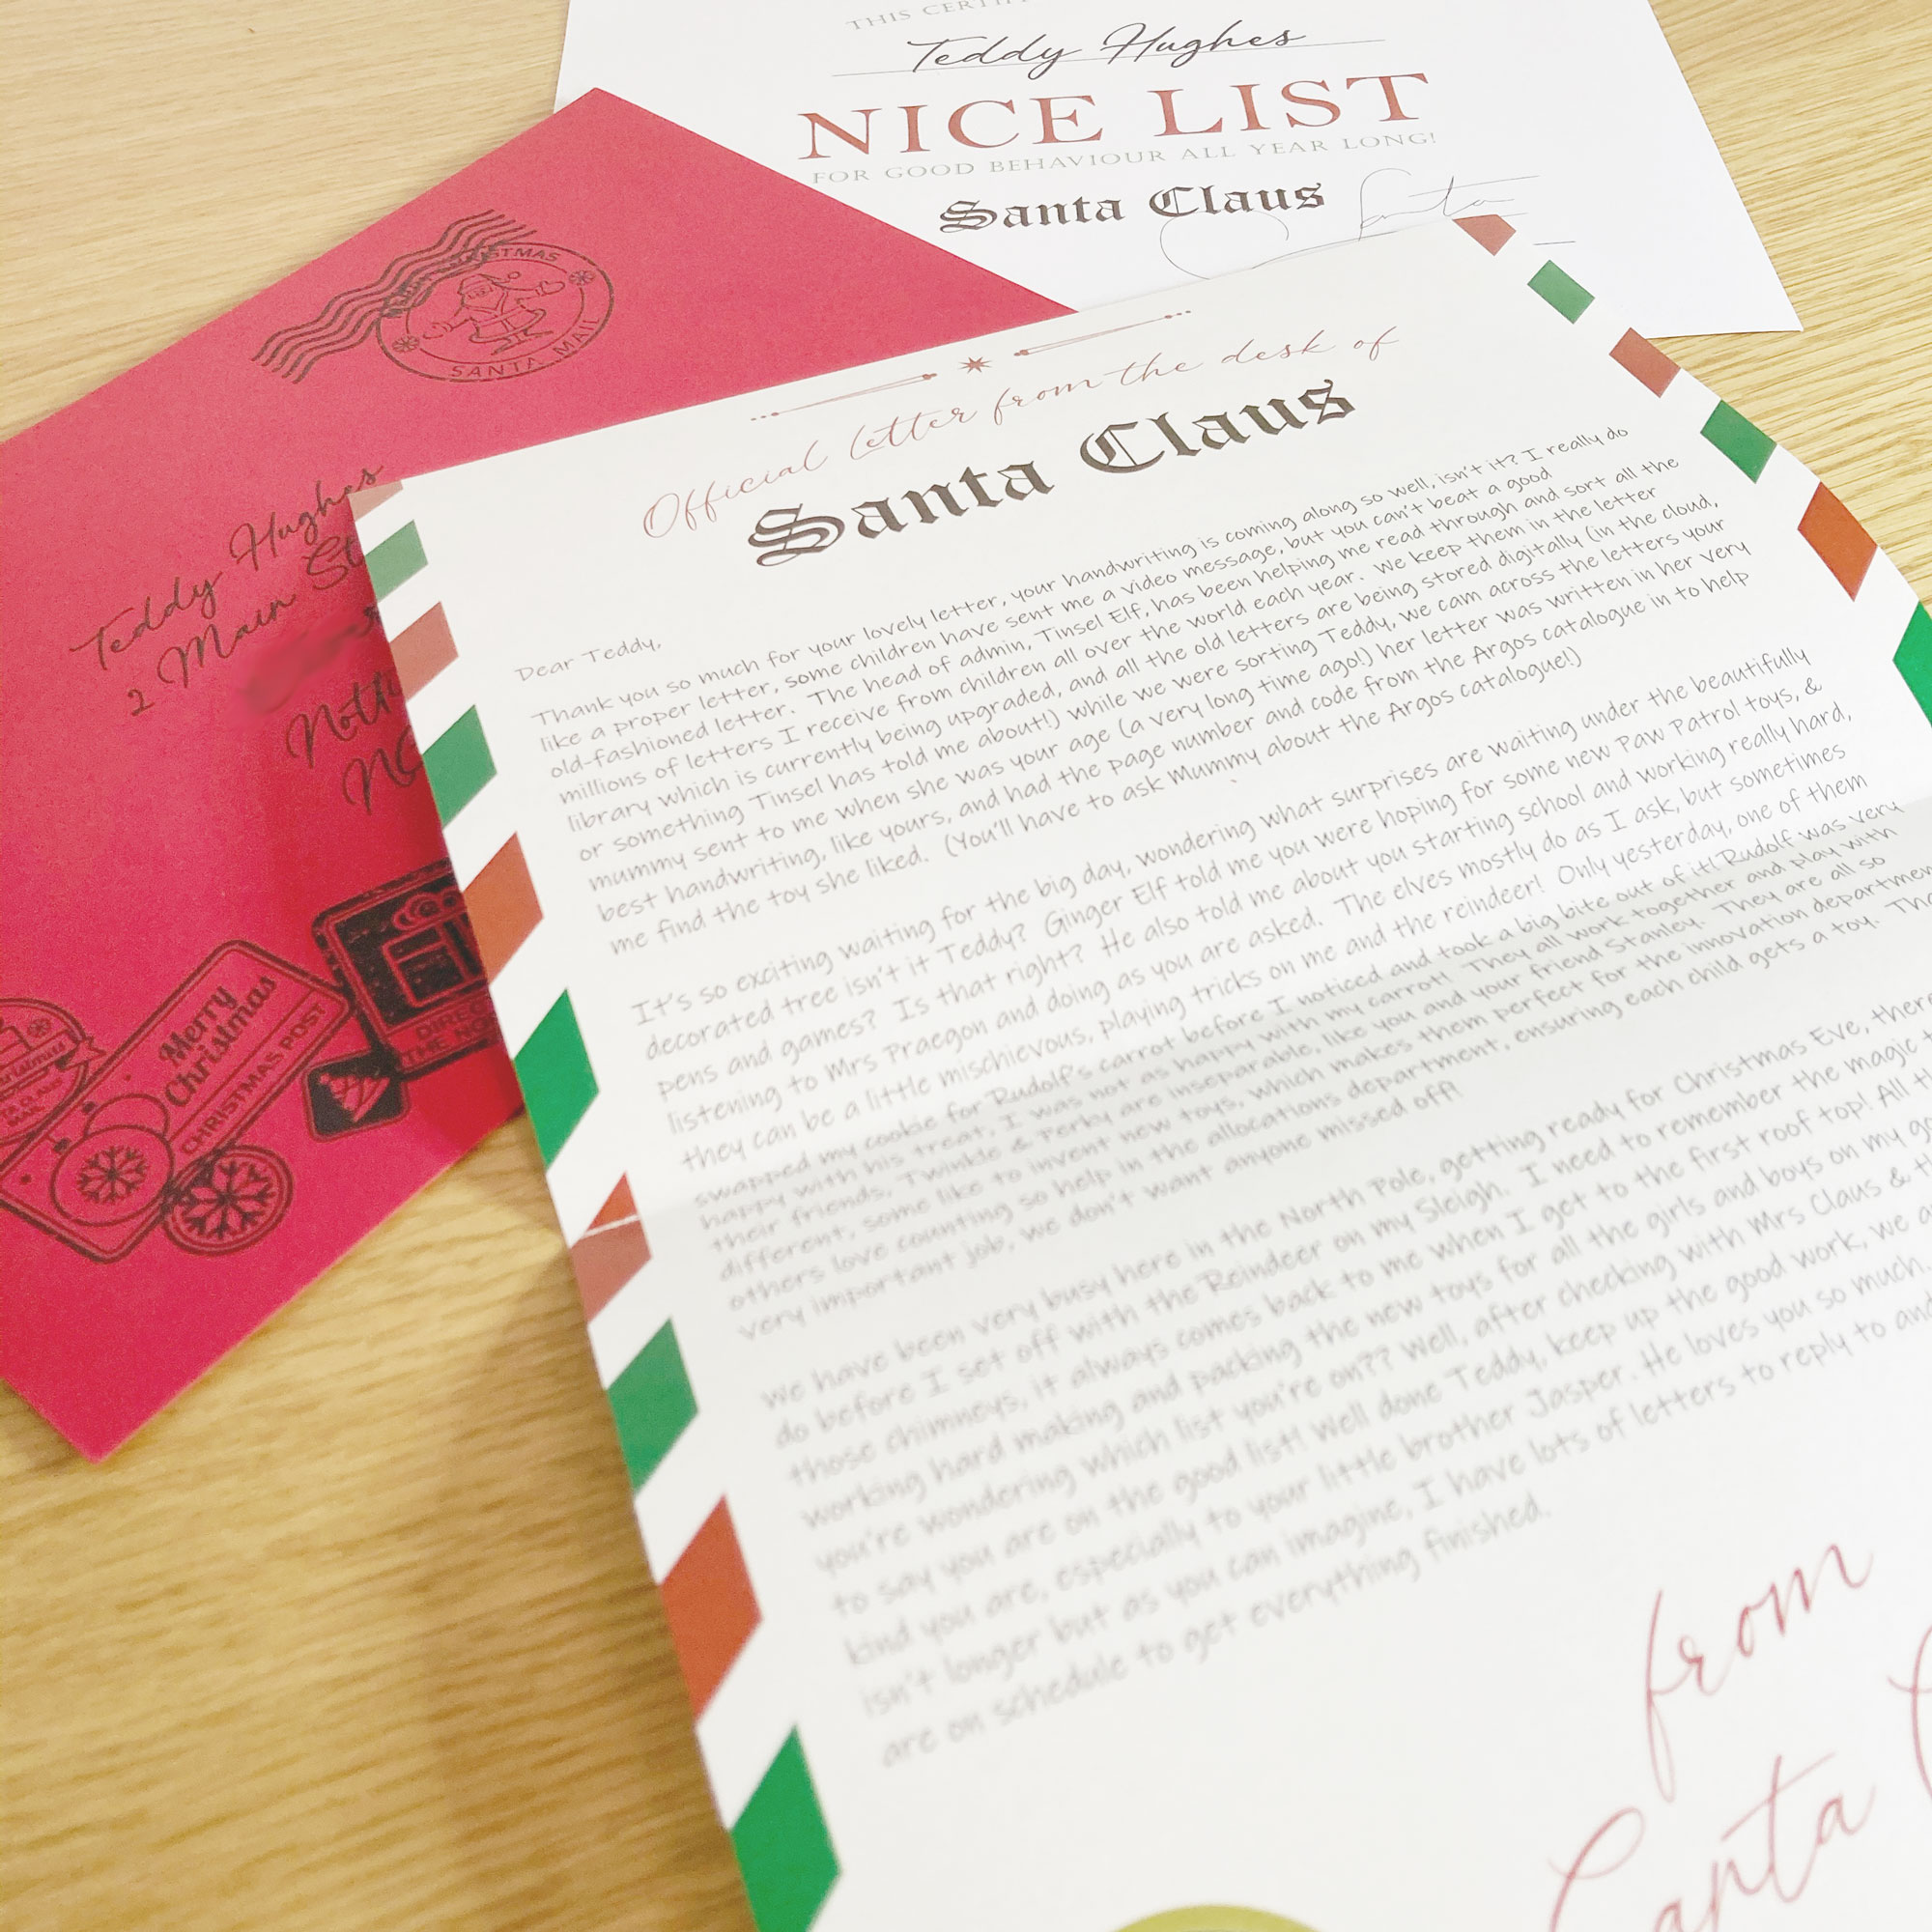 THIS CERTIF
Teddy Hughes
NICE LIST
FOR GOOD BEHAVIOUR ALL YEAR LONG!
Santa Claus
Santa
CHRISTMAS
SANTA MAIL
Teddy Hughes
2 Main St
Notti
NG
Merry
Christmas
CHRISTMAS POST
DIREC
THE NO
Official Letter from the desk of
Santa Claus
Dear Teddy,
Thank you so much for your lovely letter, your handwriting is coming along so well, isn't it? I really do
like a proper letter, some children have sent me a video message, but you can't beat a good
old-fashioned letter. The head of admin, Tinsel Elf, has been helping me read through and sort all the
millions of letters I receive from children all over the world each year. We keep them in the letter
library which is currently being upgraded, and all the old letters are being stored digitally (in the cloud,
or something Tinsel has told me about!) while we were sorting Teddy, we cam across the letters your
mummy sent to me when she was your age (a very long time ago!) her letter was written in her very
best handwriting, like yours, and had the page number and code from the Argos catalogue in to help
me find the toy she liked. (You'll have to ask Mummy about the Argos catalogue!)
It's so exciting waiting for the big day, wondering what surprises are waiting under the beautifully
decorated tree isn't it Teddy? Ginger Elf told me you were hoping for some new Paw Patrol toys, &
pens and games? Is that right? He also told me about you starting school and working really hard,
listening to Mrs Praegon and doing as you are asked. The elves mostly do as I ask, but sometimes
they can be a little mischievous, playing tricks on me and the reindeer! Only yesterday, one of them
swapped my cookie for Rudolf's carrot before I noticed and took a big bite out of it! Rudolf was very
happy with his treat, I was not as happy with my carrot! They all work together and play with
their friends, Twinkle & Perky are inseparable, like you and your friend Stanley. They are all so
different, some like to invent new toys, which makes them perfect for the innovation departmen
others love counting so help in the allocations department, ensuring each child gets a toy. Tha
very important job, we don't want anyone missed off!
We have been very busy here in the North Pole, getting ready for Christmas Eve, there
do before I set off with the Reindeer on my Sleigh. I need to remember the magic t
those chimneys, it always comes back to me when I get to the first roof top! All th
working hard making and packing the new toys for all the girls and boys on my go
you're wondering which list you're on?? Well, after checking with Mrs Claus & th
to say you are on the good list! Well done Teddy, keep up the good work, we a
kind you are, especially to your little brother Jasper. He loves you so much.
isn't longer but as you can imagine, I have lots of letters to reply to an
are on schedule to get everything finished.
from
Santa C